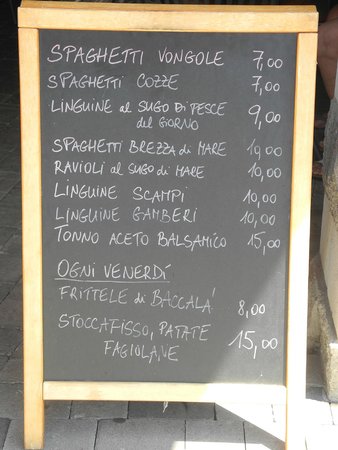 SPAGHETTI VONGOLE 7,00
SPAGHETTI COZZE 7,00
LINGUINE al SUGO DI PESCE
del GIORNO 9,00
SPAGHETTI BREZZA di MARE 10,00
RAVIOLI al SUGO di MARE 10,00
LINGUINE SCAMPI 10,00
LINGUINE GAMBERI 10,00
TONNO ACETO BALSAMICO 15,00
OGNI VENERDÍ
FRITTELE di BACCALÀ 8,00
STOCCAFISSO, PATATE
FAGIOLANE 15,00